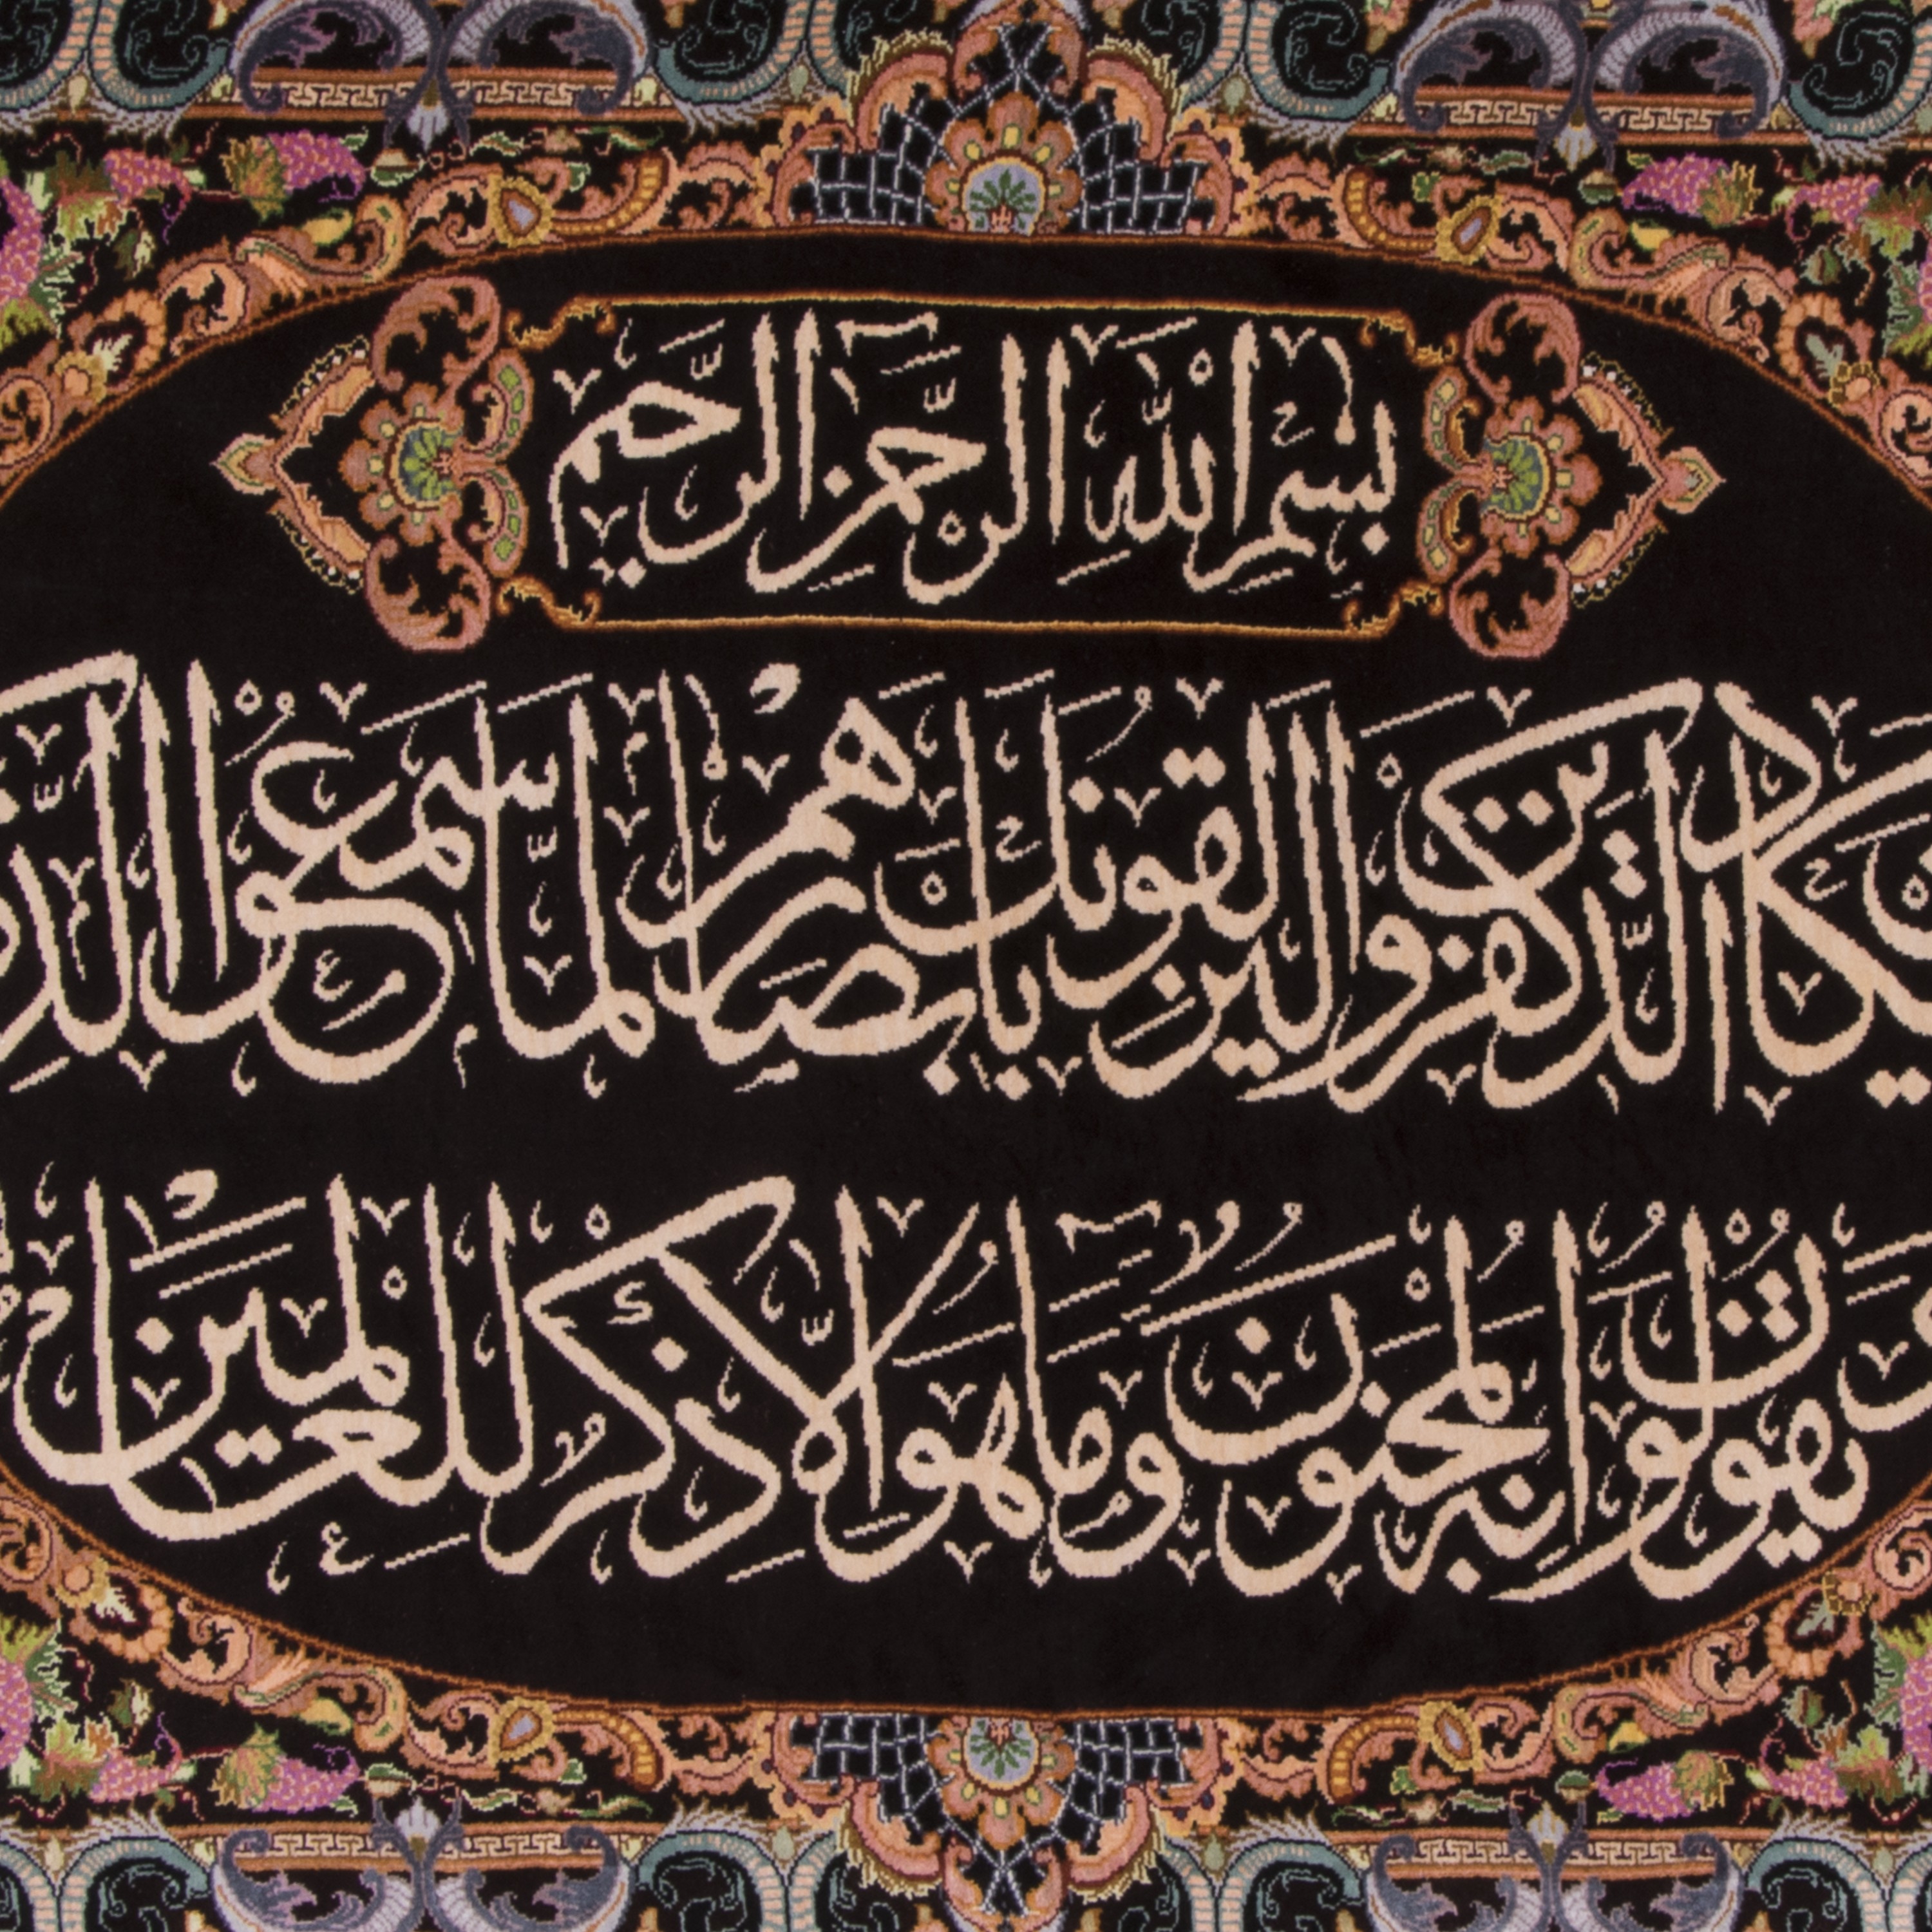 بِسْمِ اللهِ الرَّحْمٰنِ الرَّحِيمِ
يَكَادُ الَّذِينَ كَفَرُوا لَيُزْلِقُونَكَ بِأَبْصَارِهِمْ لَمَّا سَمِعُوا الذِّكْرَ
وَيَقُولُونَ إِنَّهُ لَمَجْنُونٌ وَمَا هُوَ إِلَّا ذِكْرٌ لِلْعَالَمِينَ